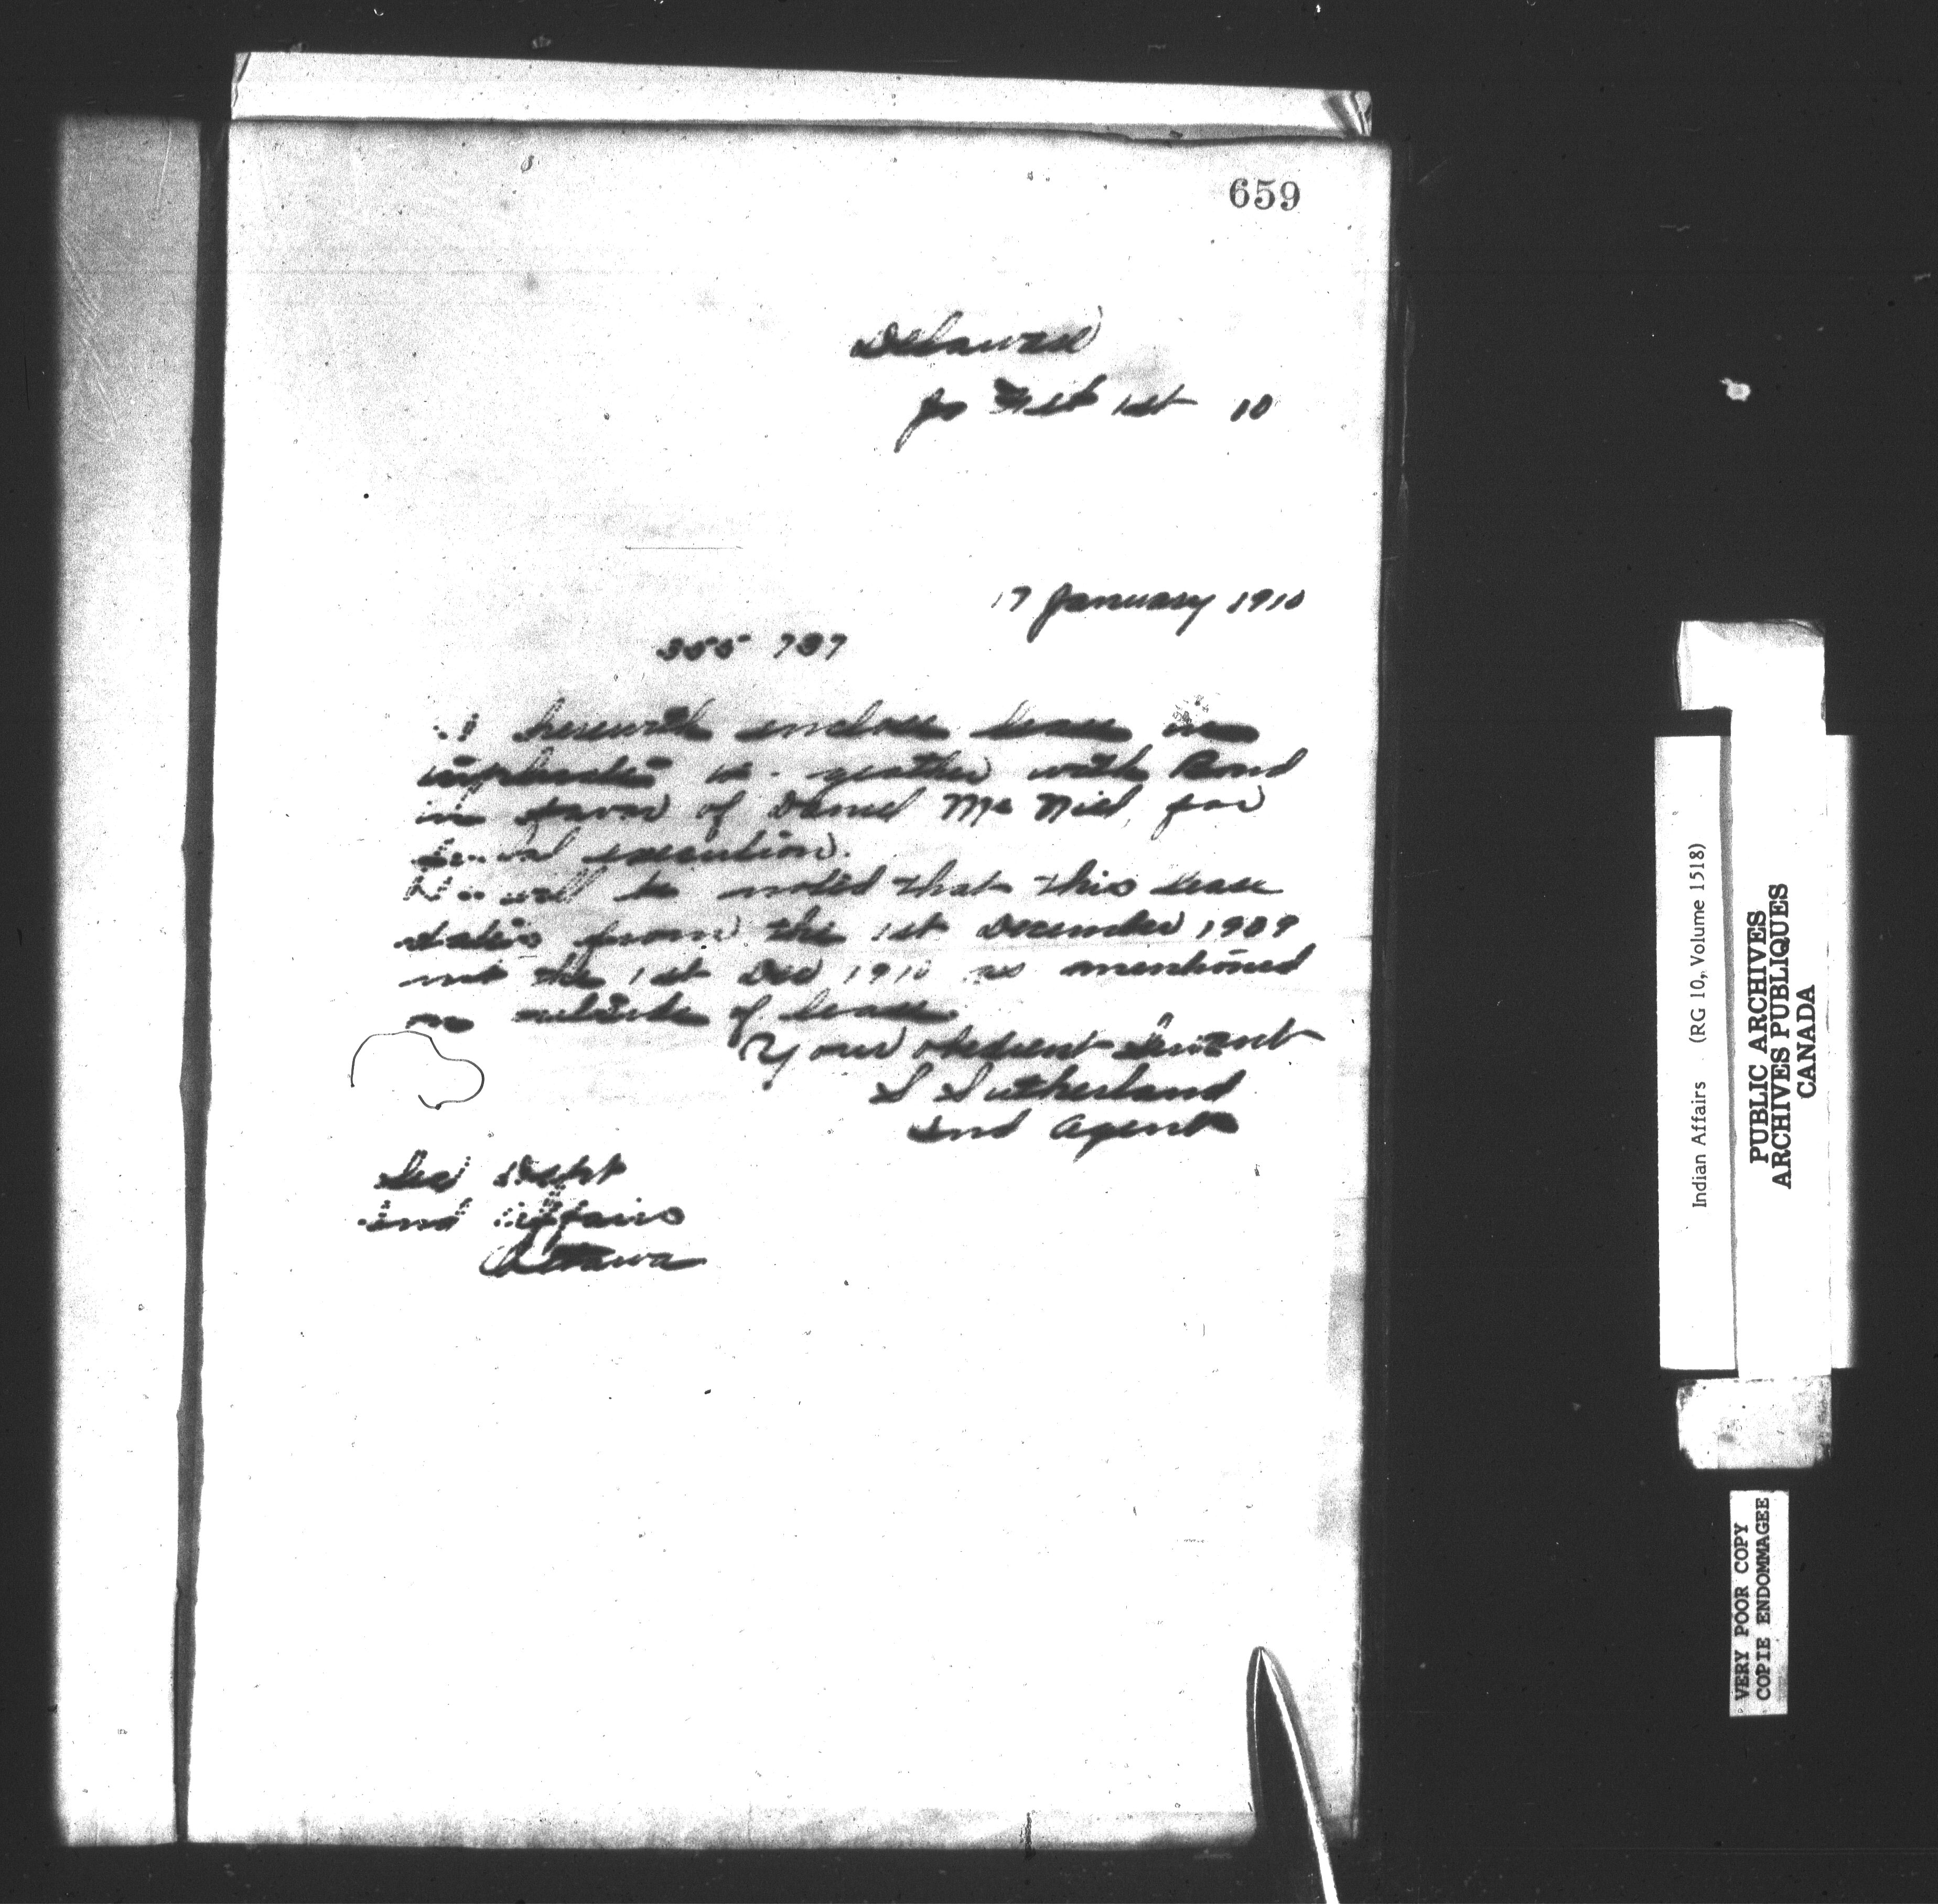 659
Delaware
1st 10
17 January 1910
355 787
I herewith enclose lease in
with Bond
in favor of Daniel McNiel, for
execution.
It will be noted that this lease
dates from the 1st December 1909
not the 1st Dec 1910 as mentioned
on outside of lease
Your obedient Servant
S Sutherland
Ind Agent
Sec Dept
Ind Affairs
Ottawa
Indian Affairs (RG 10, Volume 1518)
PUBLIC ARCHIVES
ARCHIVES PUBLIQUES
CANADA
VERY POOR COPY
COPIE ENDOMMAGEE